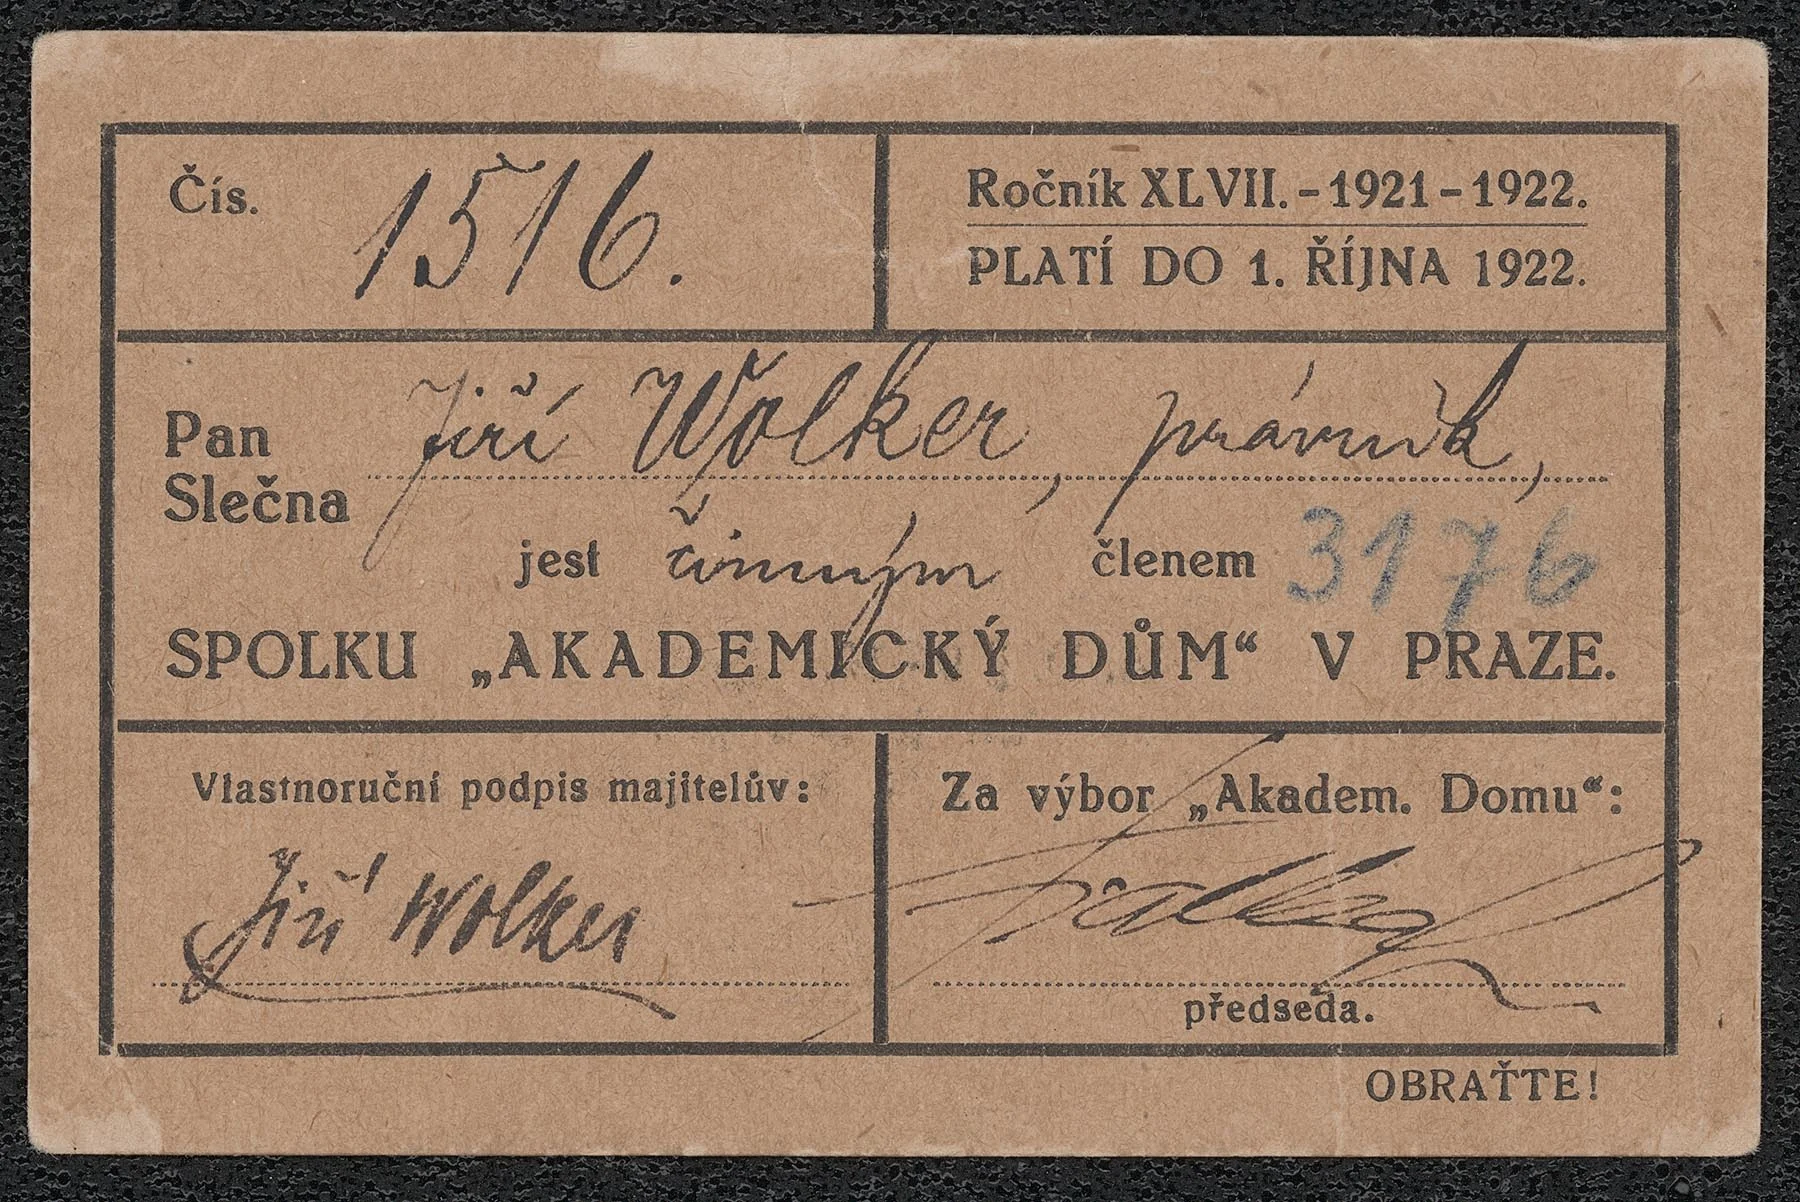 Čís. 1516.
Ročník XLVII. – 1921 – 1922.
PLATÍ DO 1. ŘÍJNA 1922.
Pan
Jiří Wolker, právník,
Slečna
jest činným členem 3176
SPOLKU „AKADEMICKÝ DŮM“ V PRAZE.
Vlastnoruční podpis majitelův:
Jiří Wolker
Za výbor „Akadem. Domu“:
předseda.
OBRAŤTE!